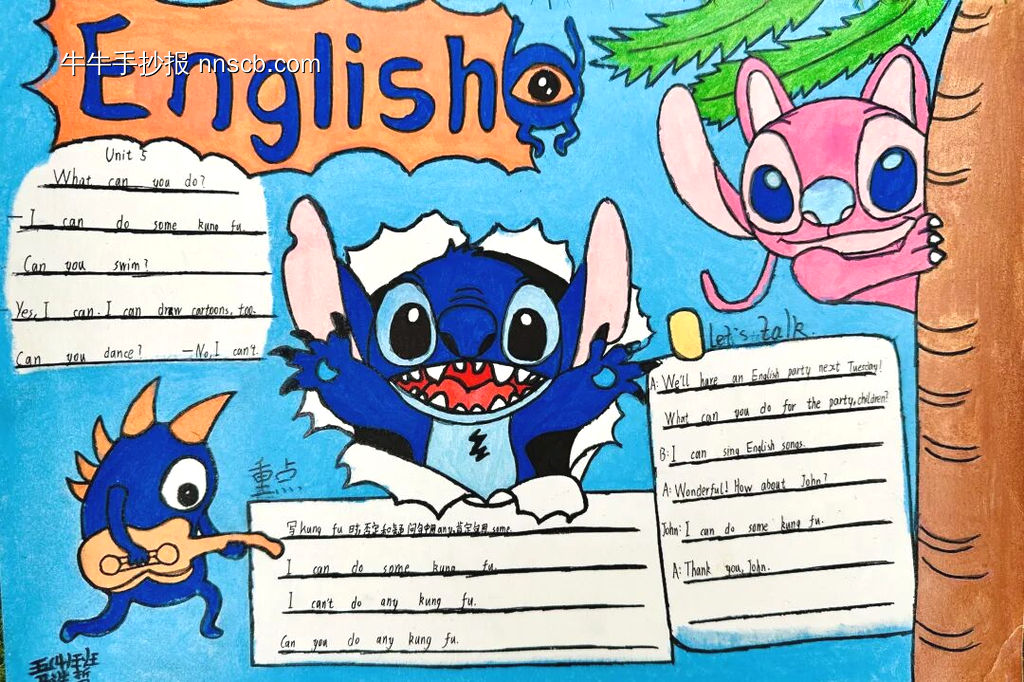 牛牛手抄报 nnscb.com
English
Unit 5
What can you do?
— I can do some kung fu.
Can you swim?
Yes, I can. I can draw cartoons, too.
Can you dance? — No, I can't.
Let's talk.
A: We'll have an English party next Tuesday!
What can you do for the party, children?
B: I can sing English songs.
A: Wonderful! How about John?
John: I can do some kung fu.
A: Thank you, John.
重点
写 kung fu 时, 否定和疑问句中用 any, 肯定句用 some.
I can do some kung fu.
I can't do any kung fu.
Can you do any kung fu.
五(4)班